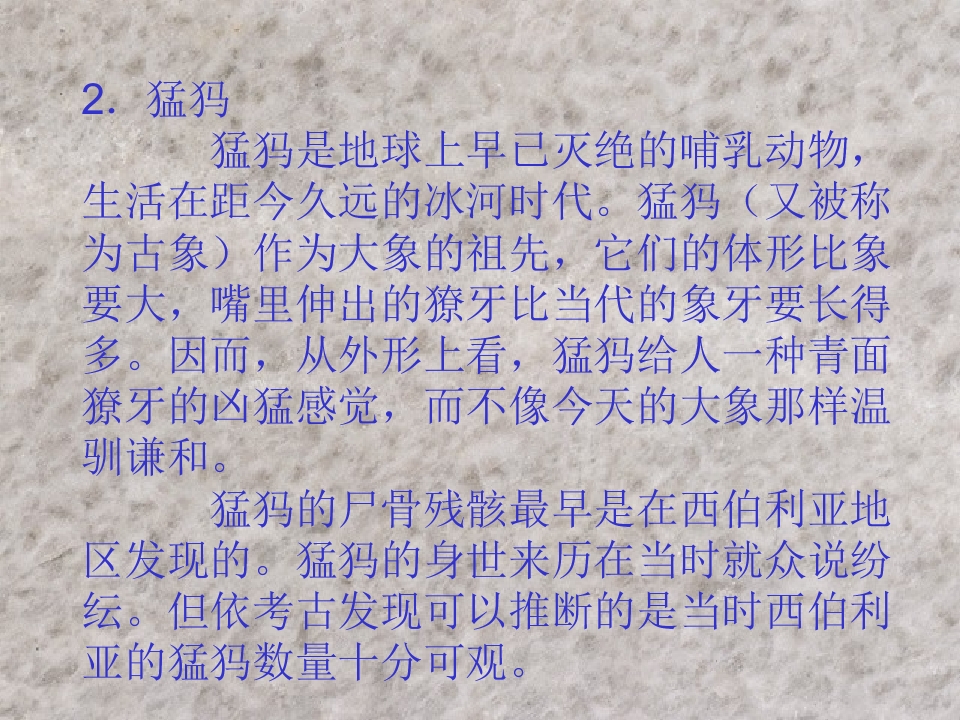 2．猛犸
猛犸是地球上早已灭绝的哺乳动物，
生活在距今久远的冰河时代。猛犸（又被称
为古象）作为大象的祖先，它们的体形比象
要大，嘴里伸出的獠牙比当代的象牙要长得
多。因而，从外形上看，猛犸给人一种青面
獠牙的凶猛感觉，而不像今天的大象那样温
驯谦和。
猛犸的尸骨残骸最早是在西伯利亚地
区发现的。猛犸的身世来历在当时就众说纷
纭。但依考古发现可以推断的是当时西伯利
亚的猛犸数量十分可观。